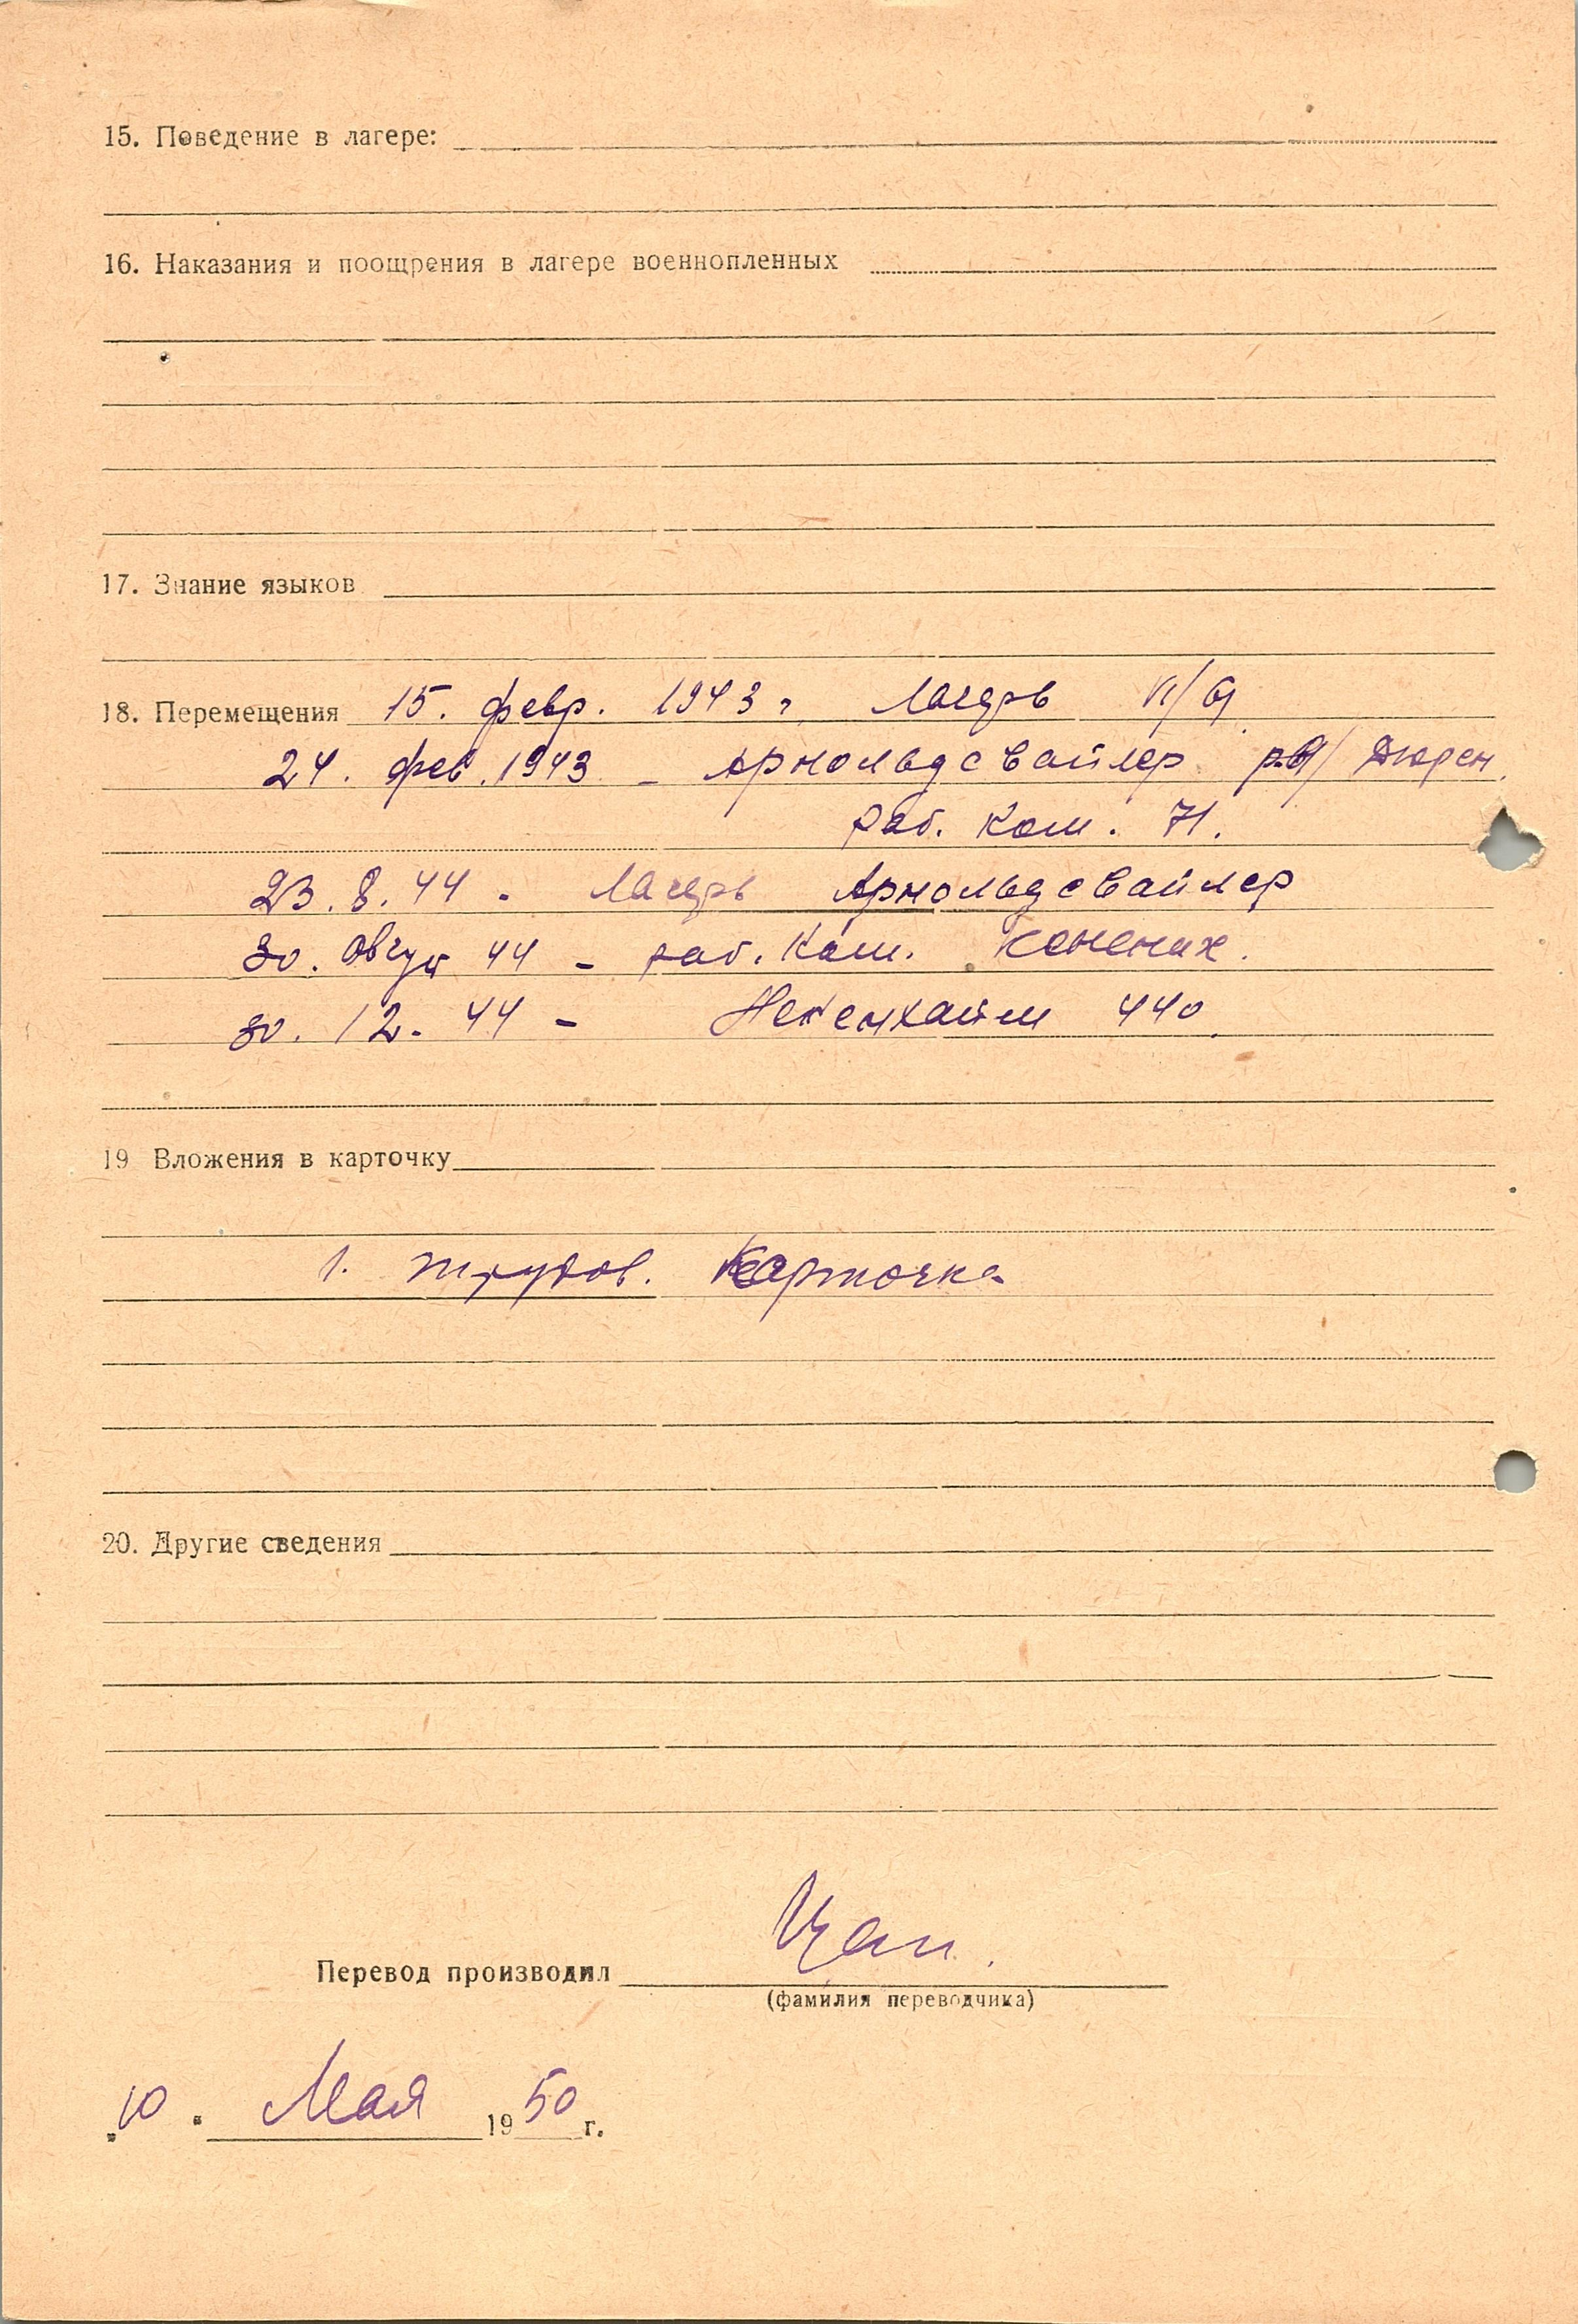 15. Поведение в лагере:
16. Наказания и поощрения в лагере военнопленных
17. Знание языков
18. Перемещения 15. февр. 1943 г. Лагерь
24. фев. 1943 - Арнольдсвайлер Дюрен
раб. ком. 71.
23. 8. 44 - Лагерь Арнольдсвайлер
30. 44 - раб. ком.
30. 12. 44 - 440
19 Вложения в карточку
1. трудов. карточка
20. Другие сведения
Перевод производил
(фамилия переводчика)
„10" Мая 1950 г.